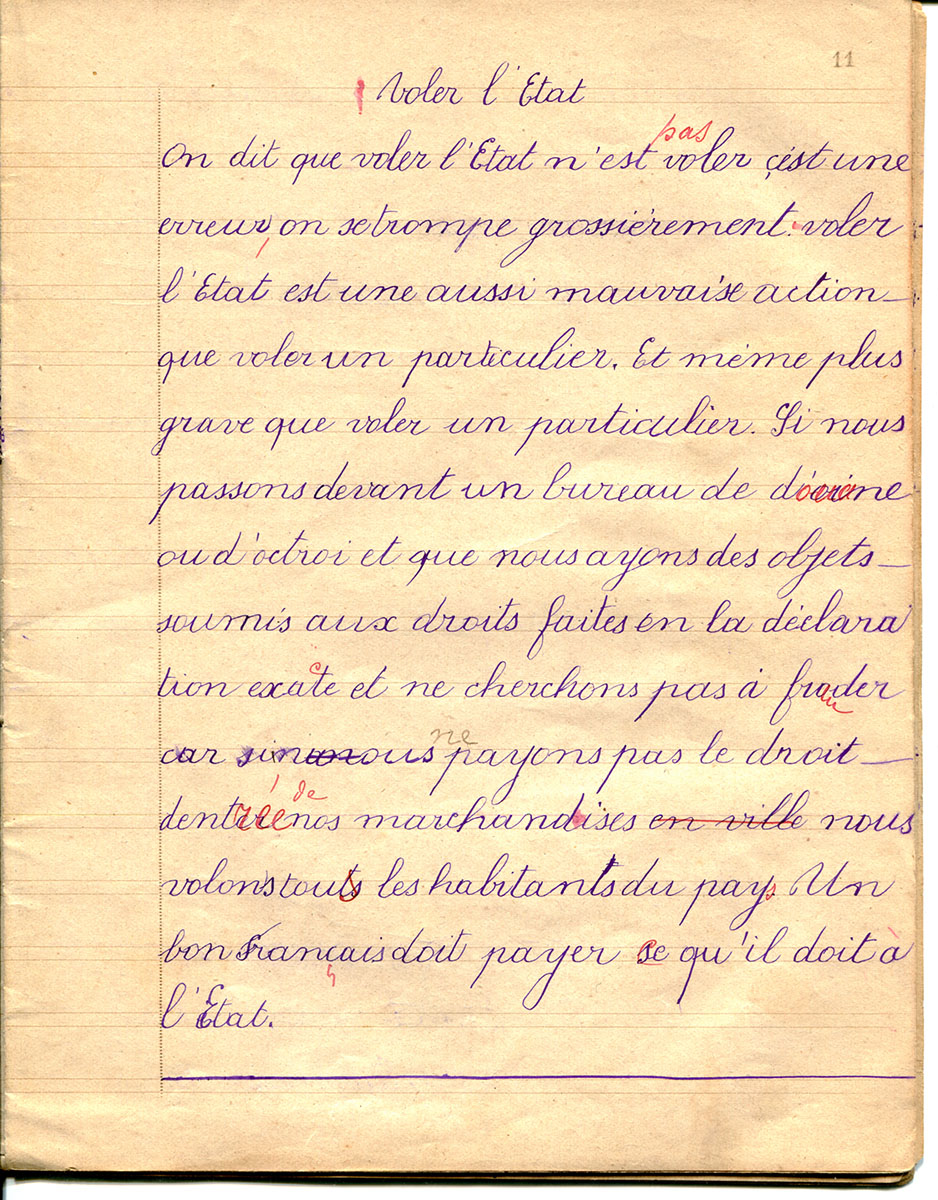 11
Voler l'Etat
pas
On dit que voler l'Etat n'est voler c'est une
erreur, on se trompe grossièrement. voler
l'Etat est une aussi mauvaise action
que voler un particulier. Et même plus
grave que voler un particulier. Si nous
passons devant un bureau de
ou d'octroi et que nous ayons des objets
soumis aux droits faites en la déclara
tion exacte et ne cherchons pas à frauder
ne
car si nous payons pas le droit
de
dentrée nos marchandises en ville nous
volons tous les habitants du pays Un
bon Français doit payer ce qu'il doit à
l'Etat.